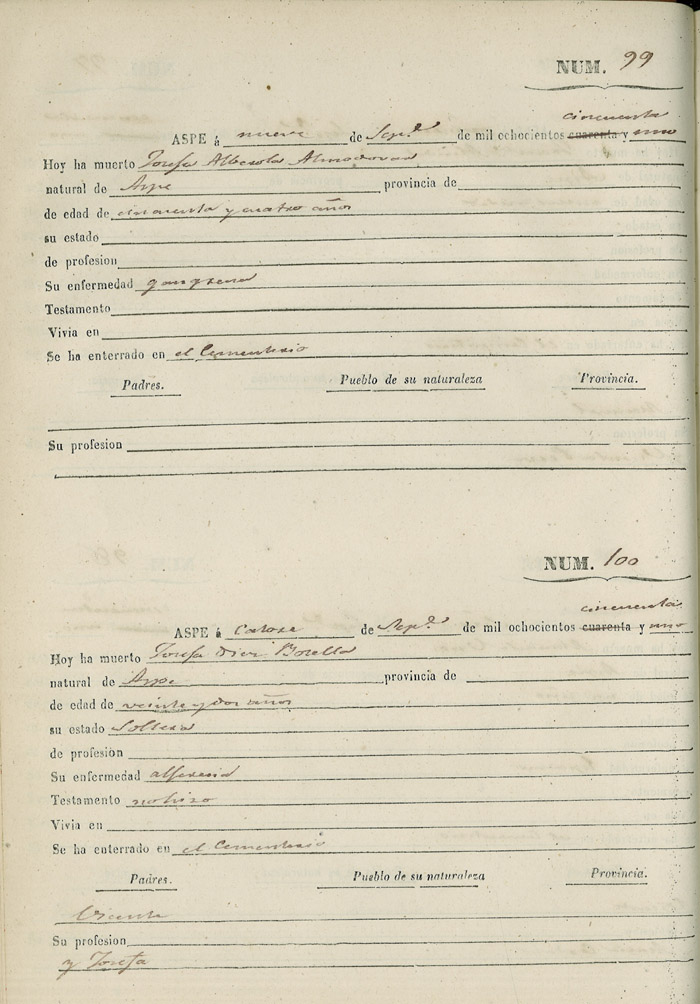 NUM. 99
cincuenta
ASPE á nueve de Sep.e de mil ochocientos cuarenta y uno
Hoy ha muerto Josefa Alberola Almodovar
natural de Aspe provincia de
de edad de cincuenta y cuatro años
su estado
de profesion
Su enfermedad gangrena
Testamento
Vivia en
Se ha enterrado en el Cementerio
Padres. Pueblo de su naturaleza Provincia.
Su profesion
NUM. 100
cincuenta
ASPE á catorse de Sep.e de mil ochocientos cuarenta y uno
Hoy ha muerto Josefa Botella
natural de Aspe provincia de
de edad de veinte y dos años
su estado Soltera
de profesion
Su enfermedad alferesia
Testamento no hizo
Vivia en
Se ha enterrado en el Cementerio
Padres. Pueblo de su naturaleza Provincia.
Vicente
Su profesion
y Josefa